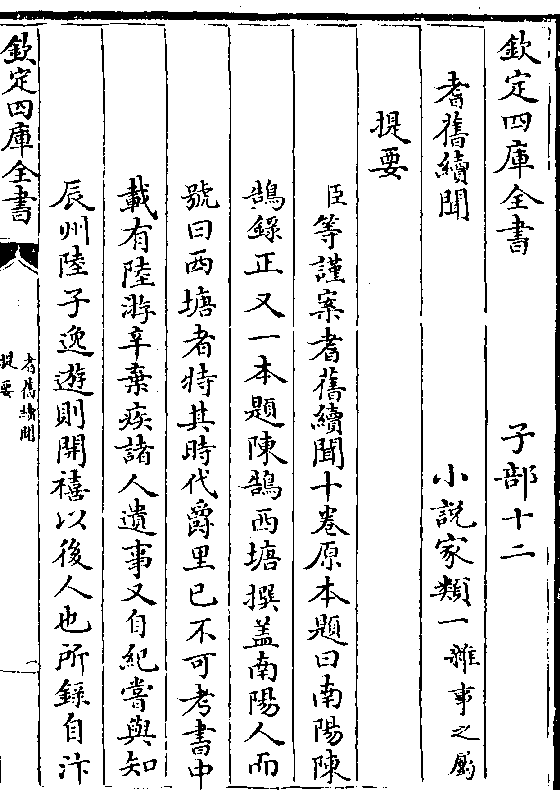 欽定四庫全書 子部十二
耆舊續聞 小說家類一雜事之屬
提要
臣等謹案耆舊續聞十卷原本題曰南陽陳
鵠錄正又一本題陳鵠西塘撰蓋南陽人而
號曰西塘者特其時代爵里已不可考書中
載有陸游辛棄疾諸人遺事又自紀嘗與知
辰州陸子逸遊則開禧以後人也所錄自汴
欽定四庫全書
耆舊續聞
提要